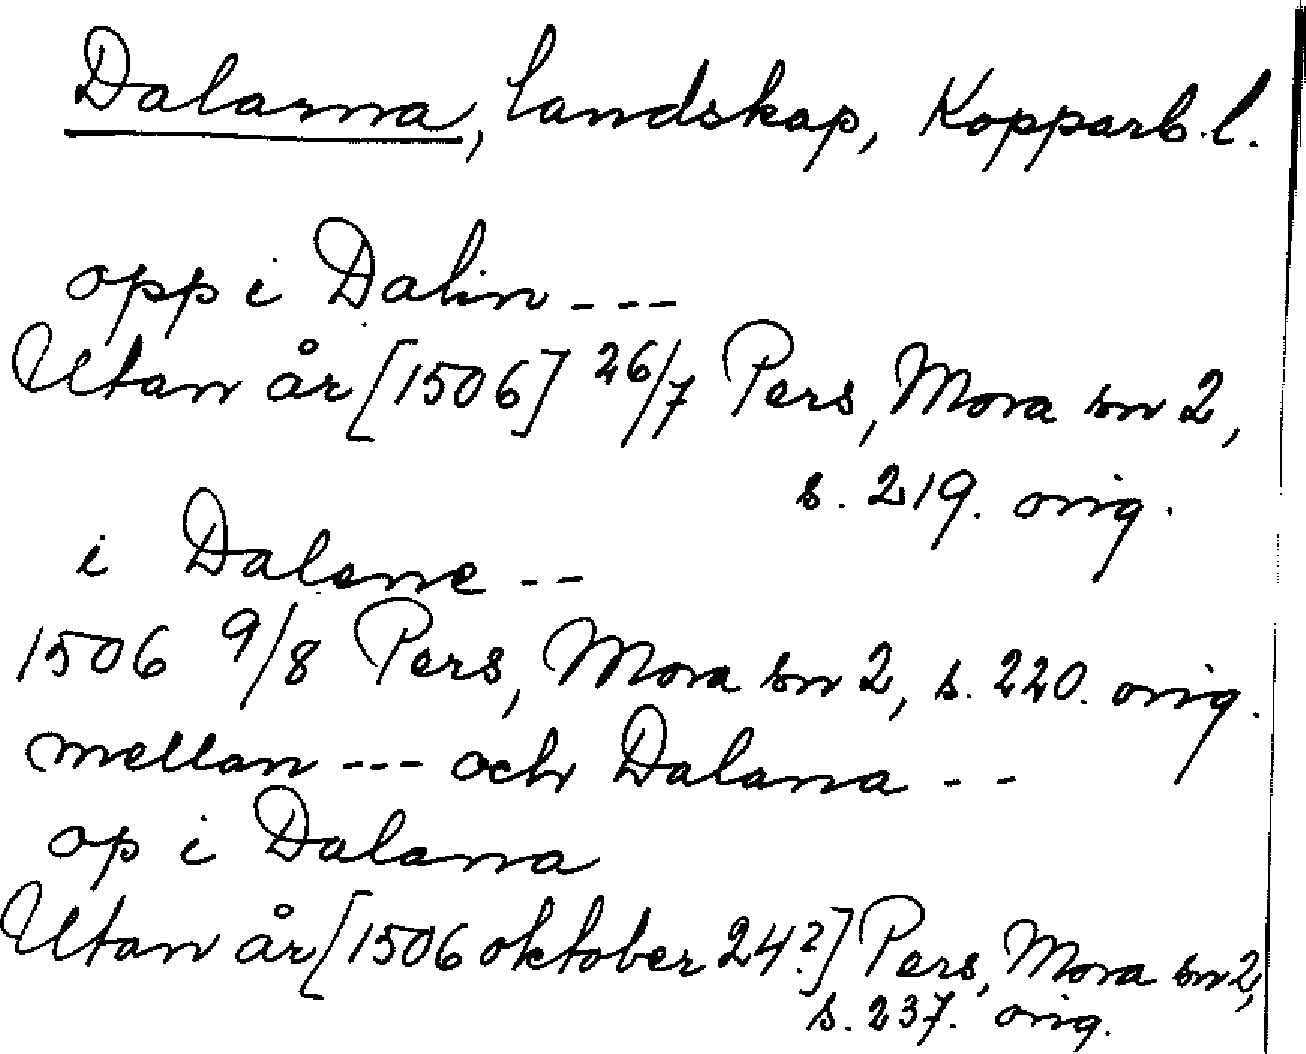 Dalarna, landskap, Kopparb. l.
opp i Dalin ---
Utan år [1506] 26/7 Pers, Mora sn 2,
s. 219. orig.
i Dalene --
1506 9/8 Pers, Mora sn 2, s. 220. orig.
mellan --- och Dalana --
op i Dalana
Utan år [1506 oktober 24?] Pers, Mora sn 2,
s. 237. orig.